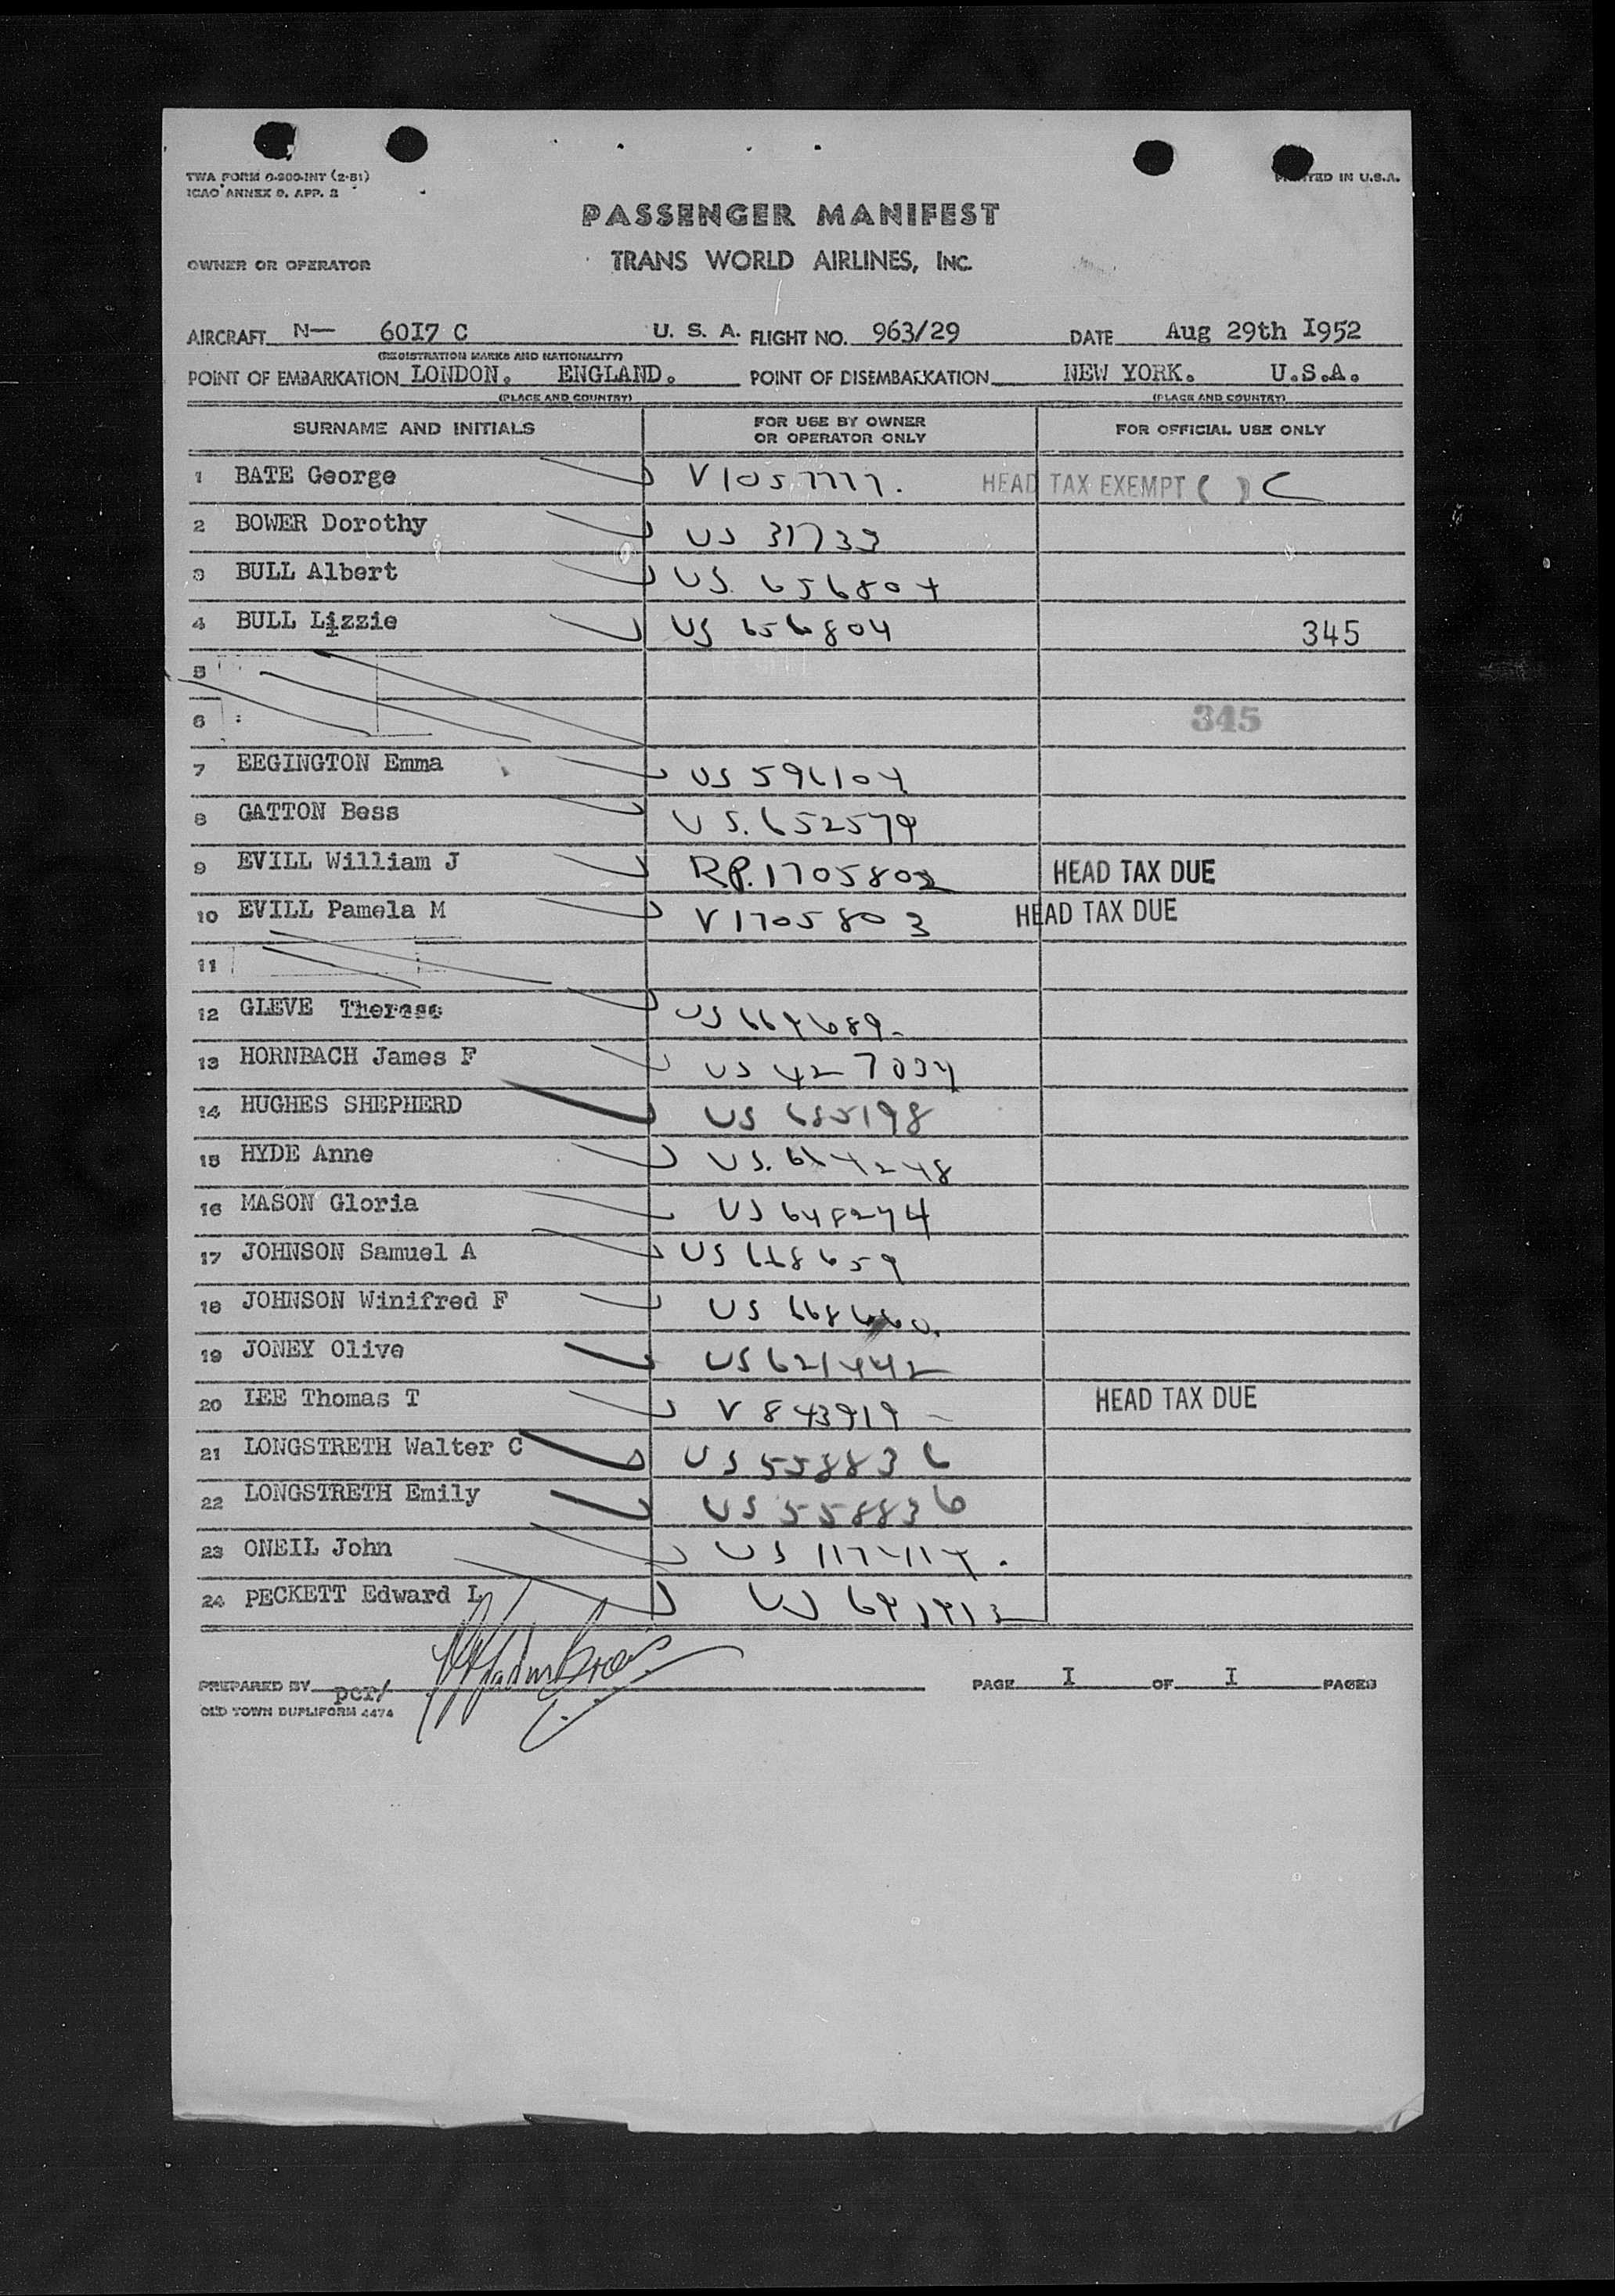 TWA FORM O-200-INT (2-51)
ICAO ANNEX 9, APP. 2
PRINTED IN U.S.A.
PASSENGER MANIFEST
OWNER OR OPERATOR TRANS WORLD AIRLINES, INC.
AIRCRAFT N— 60I7 C U. S. A. FLIGHT NO. 963/29 DATE Aug 29th I952
(REGISTRATION MARKS AND NATIONALITY)
POINT OF EMBARKATION LONDON. ENGLAND. POINT OF DISEMBARKATION NEW YORK. U.S.A.
(PLACE AND COUNTRY) (PLACE AND COUNTRY)
SURNAME AND INITIALS FOR USE BY OWNER OR OPERATOR ONLY FOR OFFICIAL USE ONLY
1 BATE George V1057777. HEAD TAX EXEMPT ( )
2 BOWER Dorothy US 31733
3 BULL Albert US 656804
4 BULL Lizzie US 656804 345
5
6 345
7 EEGINGTON Emma US 596104
8 GATTON Bess US.652579
9 EVILL William J RP.1705802 HEAD TAX DUE
10 EVILL Pamela M V1705803 HEAD TAX DUE
11
12 GLEVE Therese US 664689
13 HORNBACH James F US 427034
14 HUGHES SHEPHERD US 685198
15 HYDE Anne US.
16 MASON Gloria US 648274
17 JOHNSON Samuel A US 668659
18 JOHNSON Winifred F US 668660.
19 JONEY Olive US 621442
20 LEE Thomas T V 843919 HEAD TAX DUE
21 LONGSTRETH Walter C US 558836
22 LONGSTRETH Emily US 558836
23 ONEIL John US
24 PECKETT Edward L US
PREPARED BY pcr/ PAGE I OF I PAGES
OLD TOWN DUPLIFORM 4474